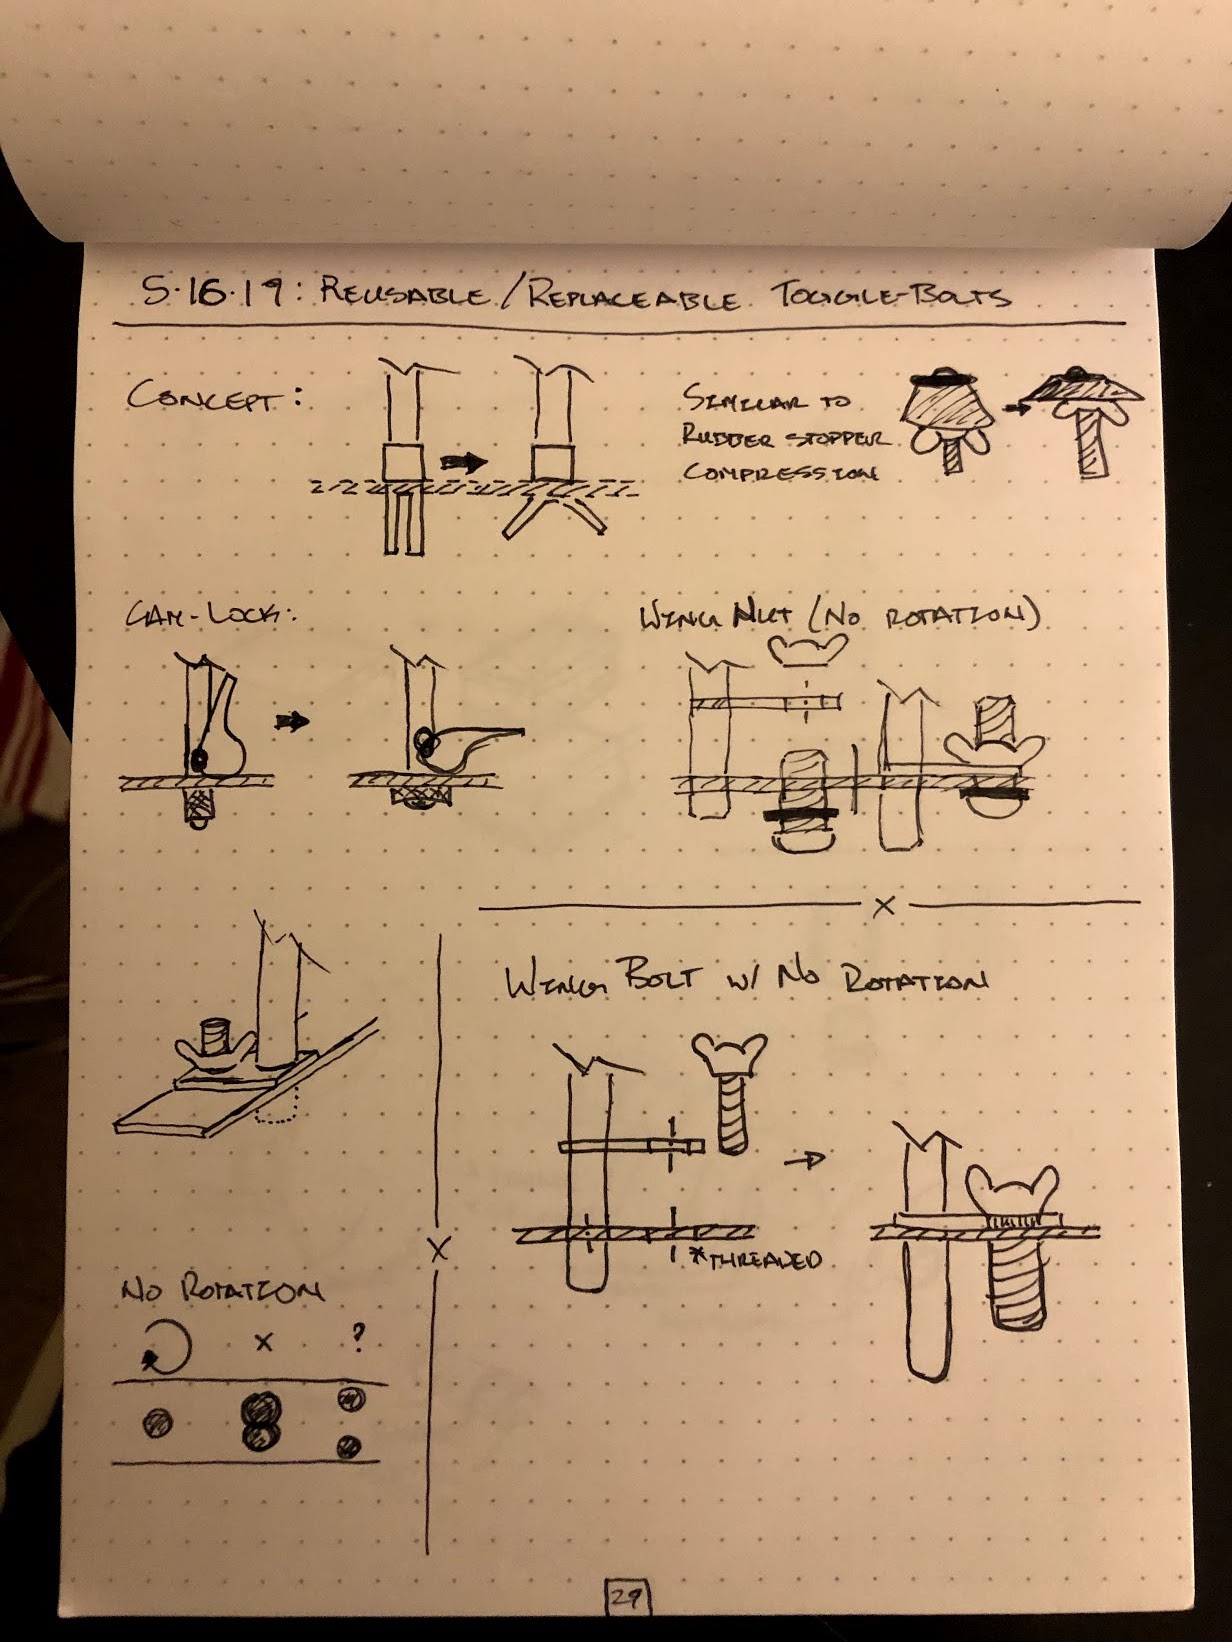 5.16.19: REUSABLE/REPLACEABLE TOGGLE-BOLTS
CONCEPT:
SIMILAR TO
RUBBER STOPPER
COMPRESSION
CAM-LOCK:
WING NUT (NO ROTATION)
X
WING BOLT W/ NO ROTATION
*THREADED
X
NO ROTATION
X ?
29